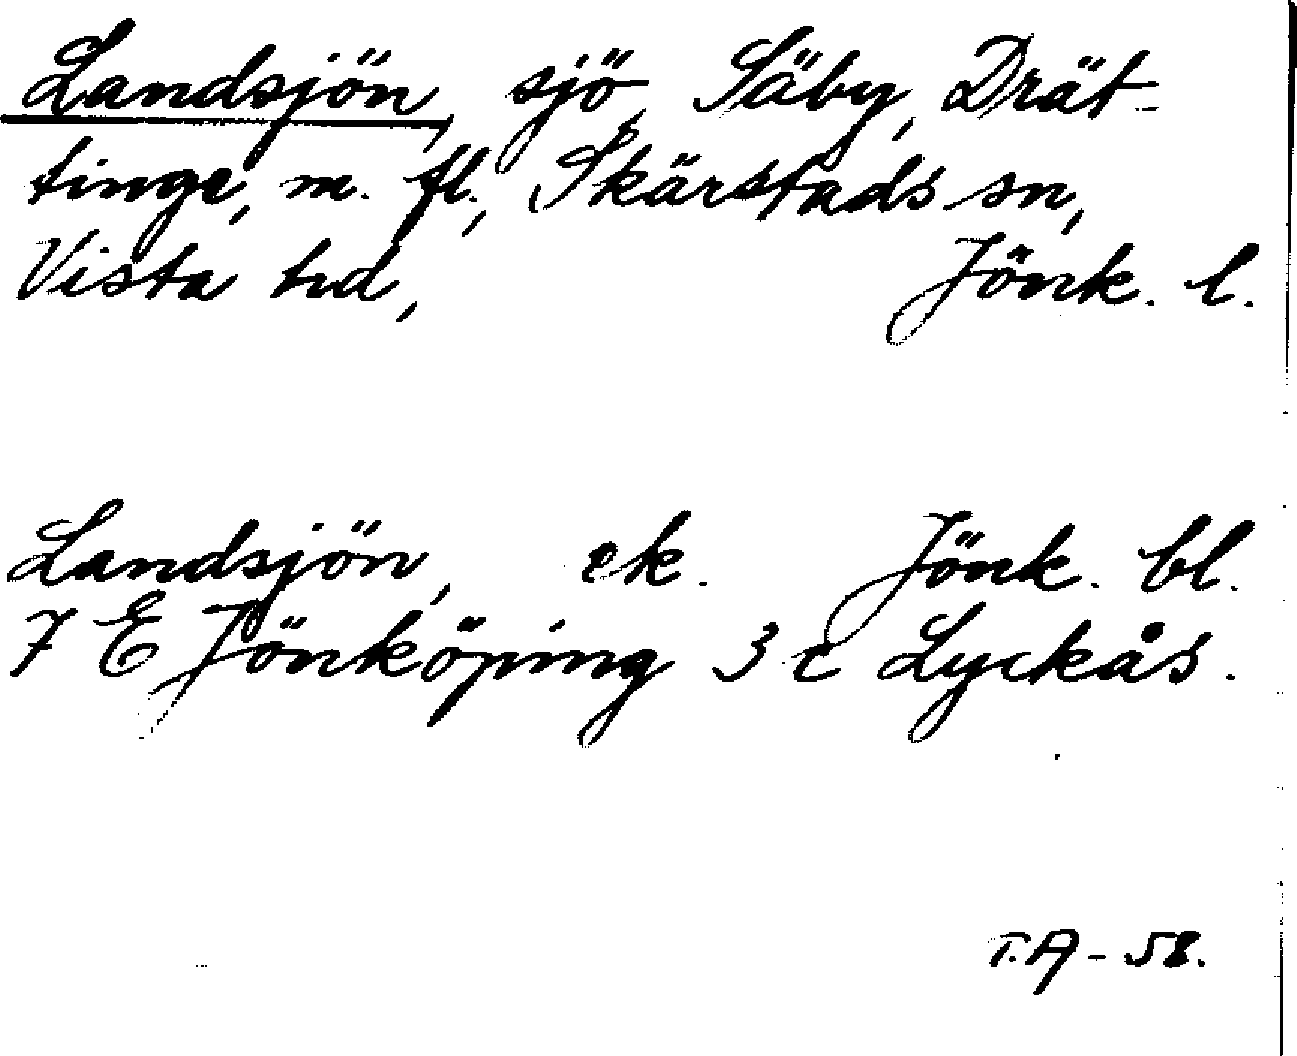 Landsjön, sjö, Säby, Drät-
tinge, m. fl., Skärstads sn,
Vista hd, Jönk. l.
Landsjön, ek. Jönk. bl.
7 E Jönköping 3 c Lyckås.
T.A - 58.